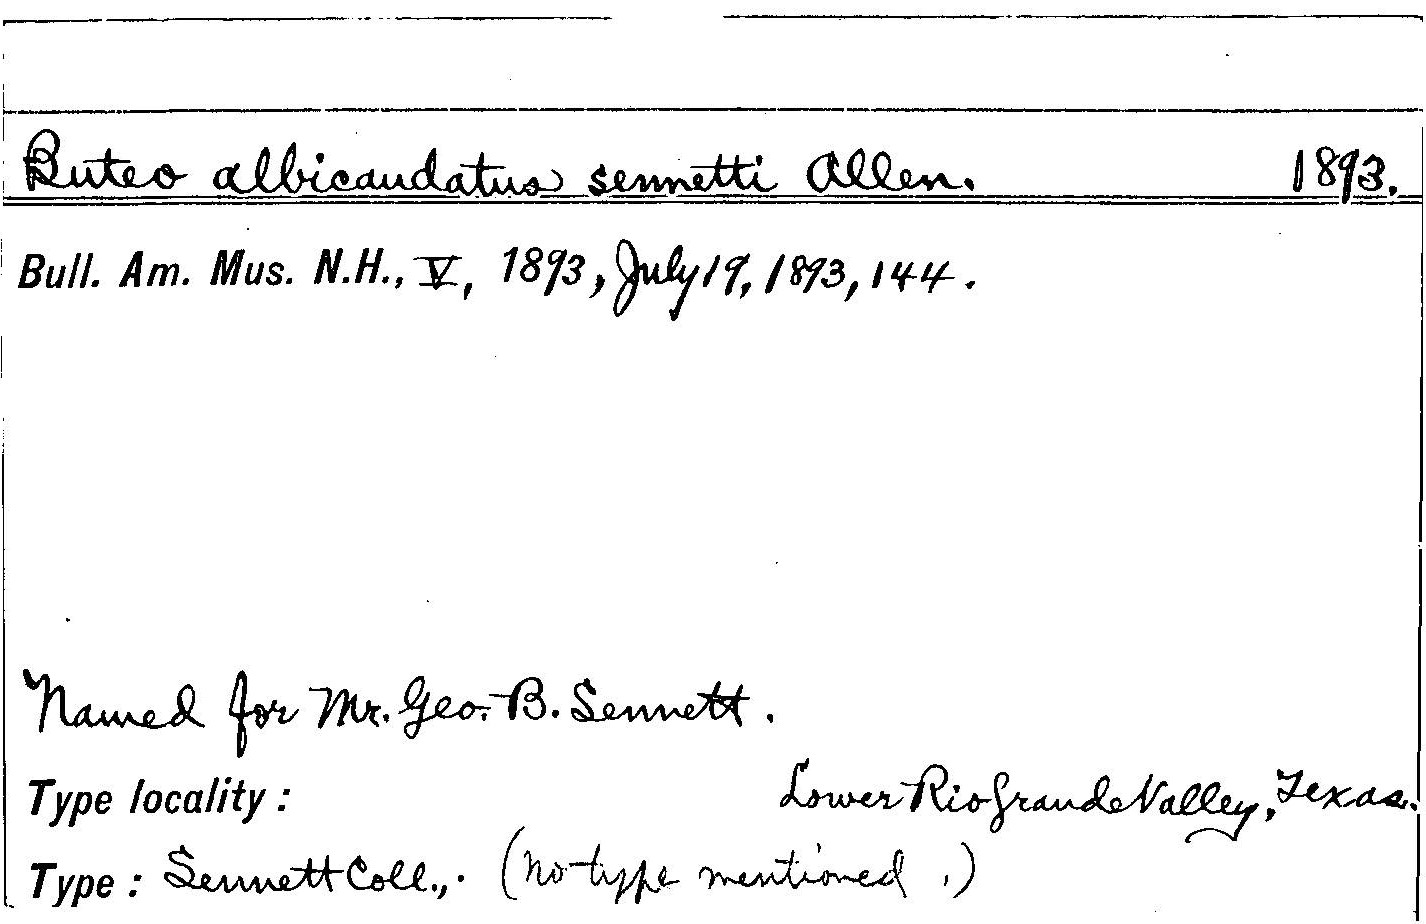 Buteo albicaudatus sennetti Allen. 1893.
Bull. Am. Mus. N.H., V, 1893, July 19, 1893, 144.
Named for Mr. Geo. B. Sennett.
Type locality: Lower Rio Grande Valley, Texas.
Type: Sennett Coll., . (No type mentioned.)